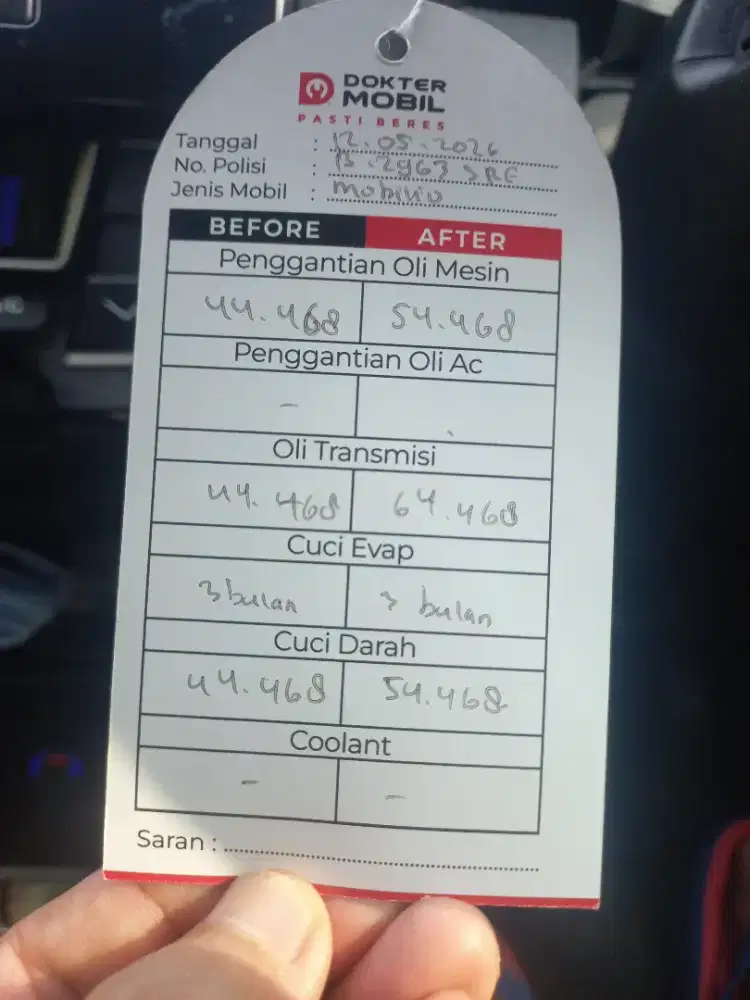 DOKTER
MOBIL
PASTI BERES
Tanggal : 12.05.2026
No. Polisi : B.2963 SRE
Jenis Mobil : mobilio
BEFORE AFTER
Penggantian Oli Mesin
44.468 54.468
Penggantian Oli Ac
-
Oli Transmisi
44.468 64.468
Cuci Evap
3 bulan 3 bulan
Cuci Darah
44.468 54.468
Coolant
- -
Saran :